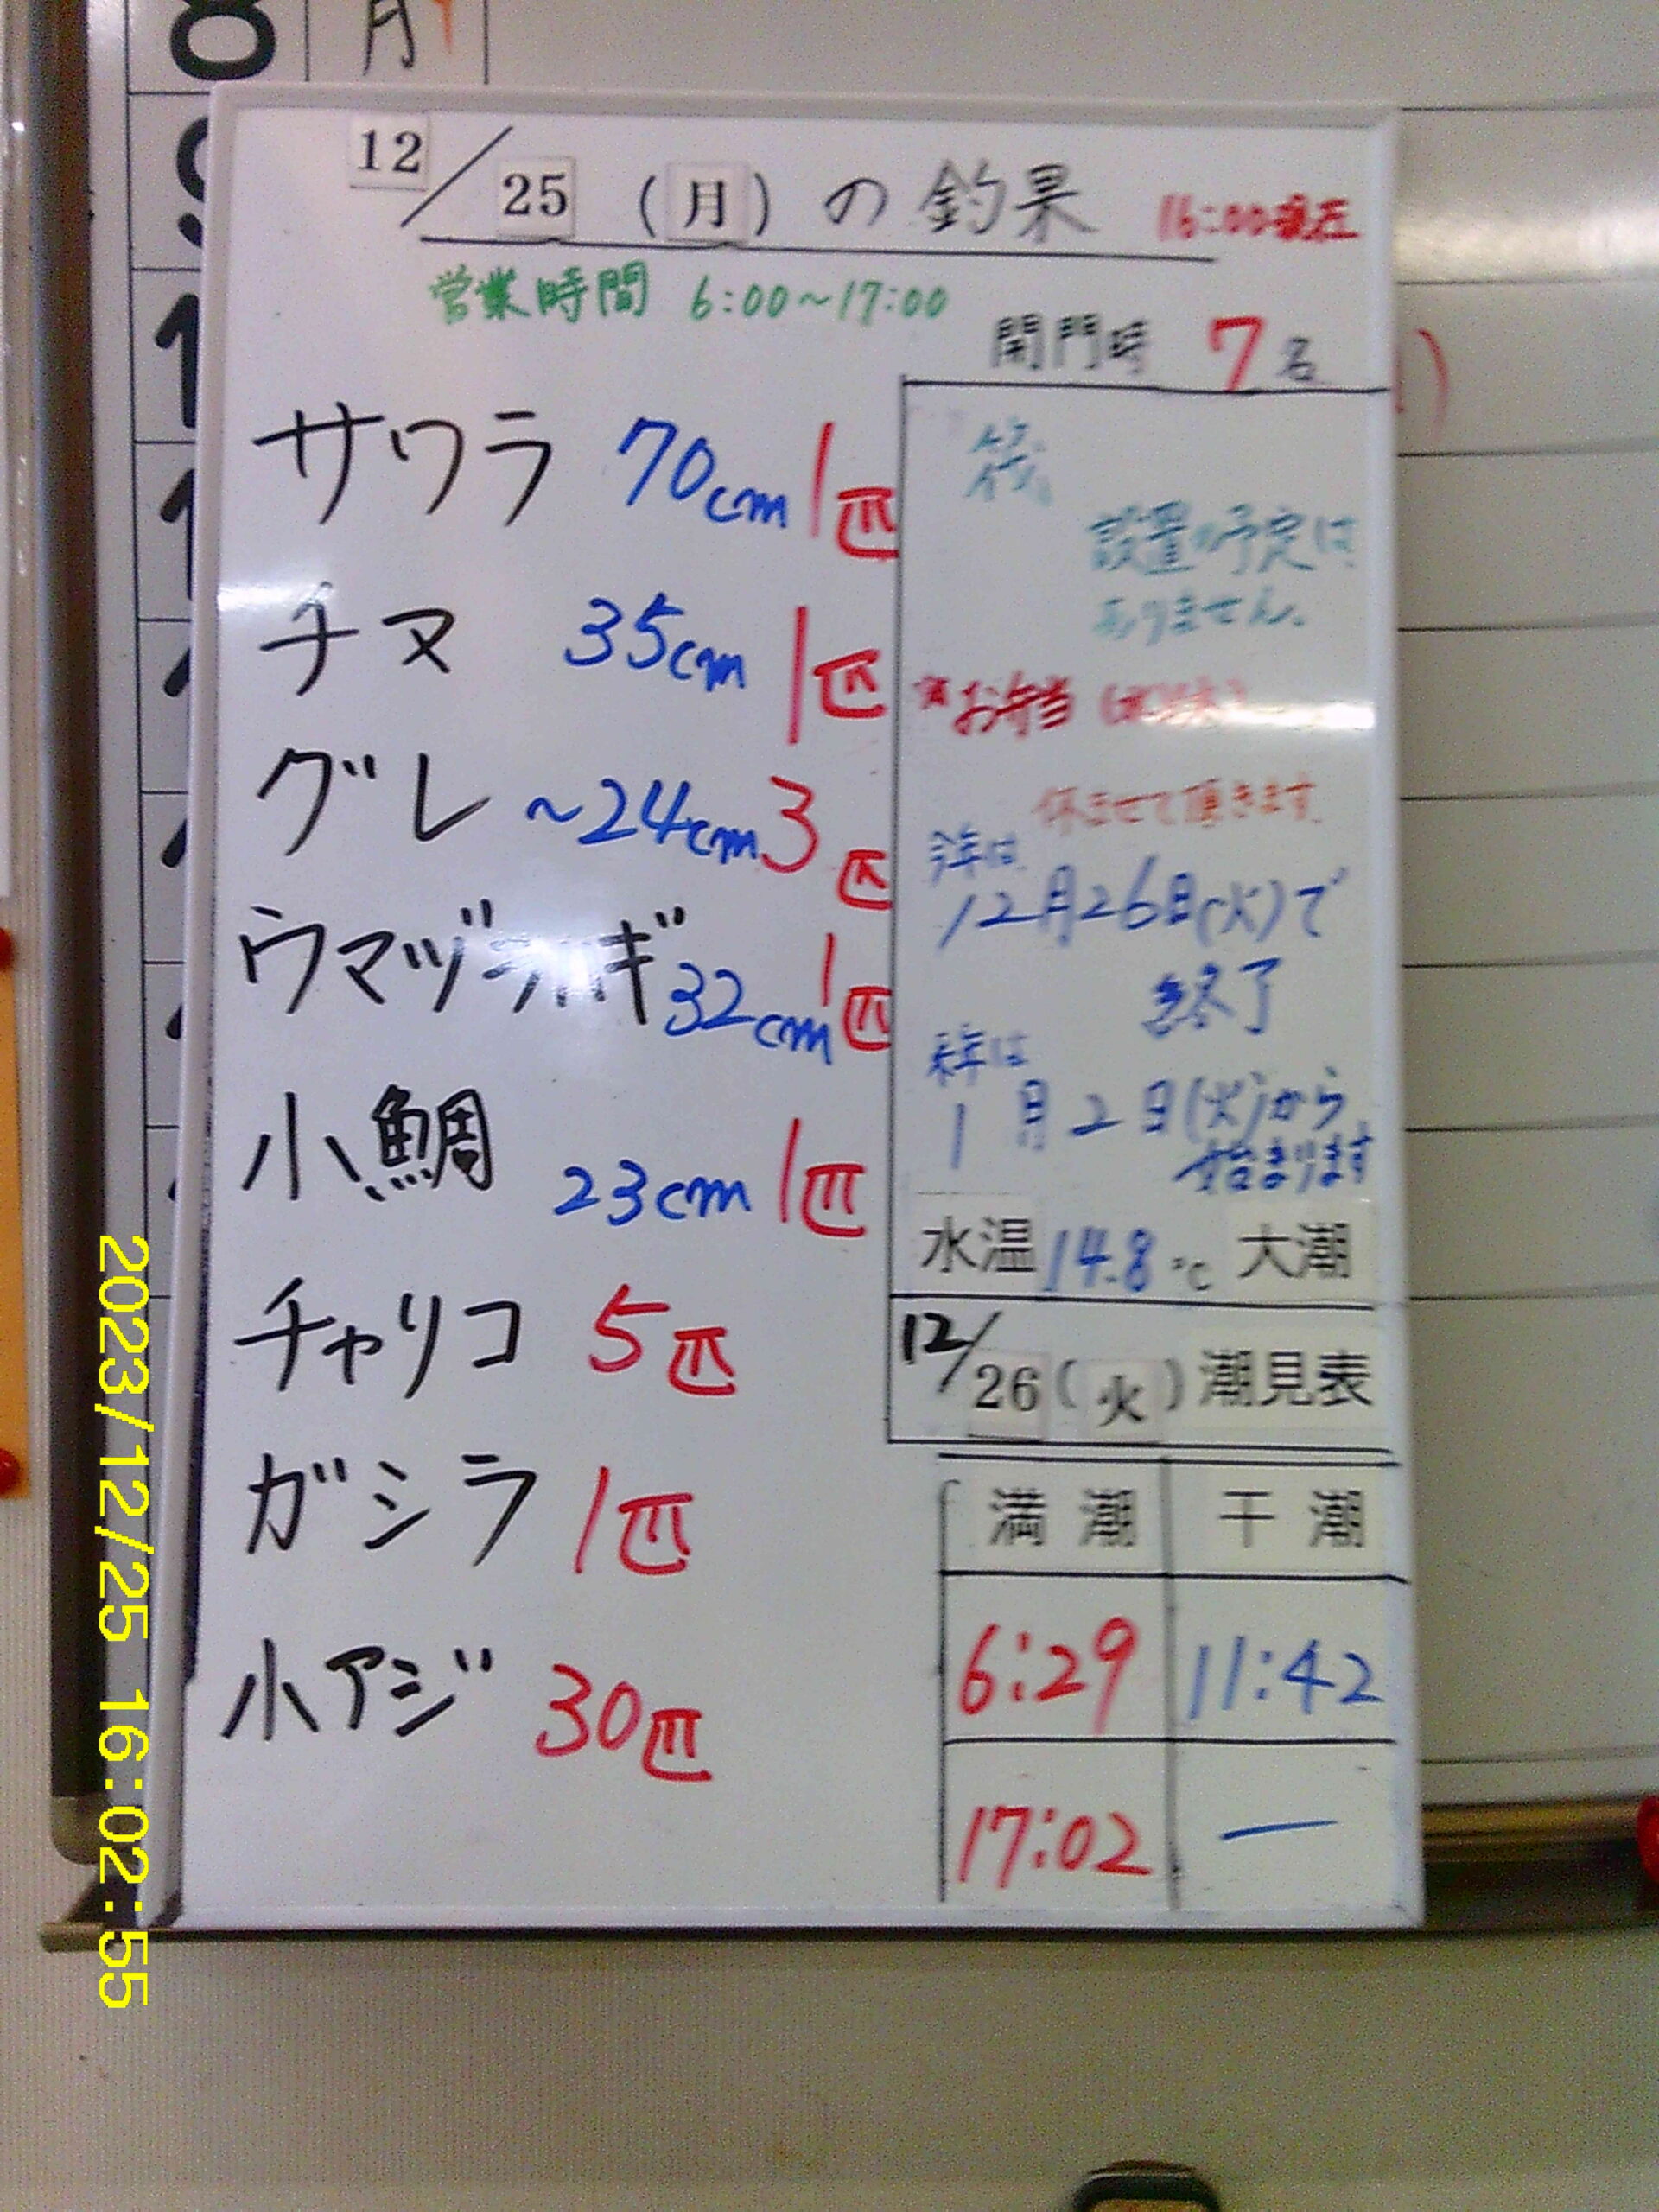 8 月
9
12/25 (月) の釣果 16:00現在
営業時間 6:00~17:00
開門時 7名
サワラ 70cm 1匹
チヌ 35cm 1匹
グレ ~24cm 3匹
ウマヅラハギ 32cm 1匹
小鯛 23cm 1匹
チャリコ 5匹
ガシラ 1匹
小アジ 30匹
筏
設置の予定は
ありません。
お弁当
休ませて頂きます。
今年は
12月26日(火)で
終了
来年は
1月2日(火)から
始まります
水温 14.8℃ 大潮
12/26 (火) 潮見表
満潮 干潮
6:29 11:42
17:02 —
2023/12/25 16:02:55